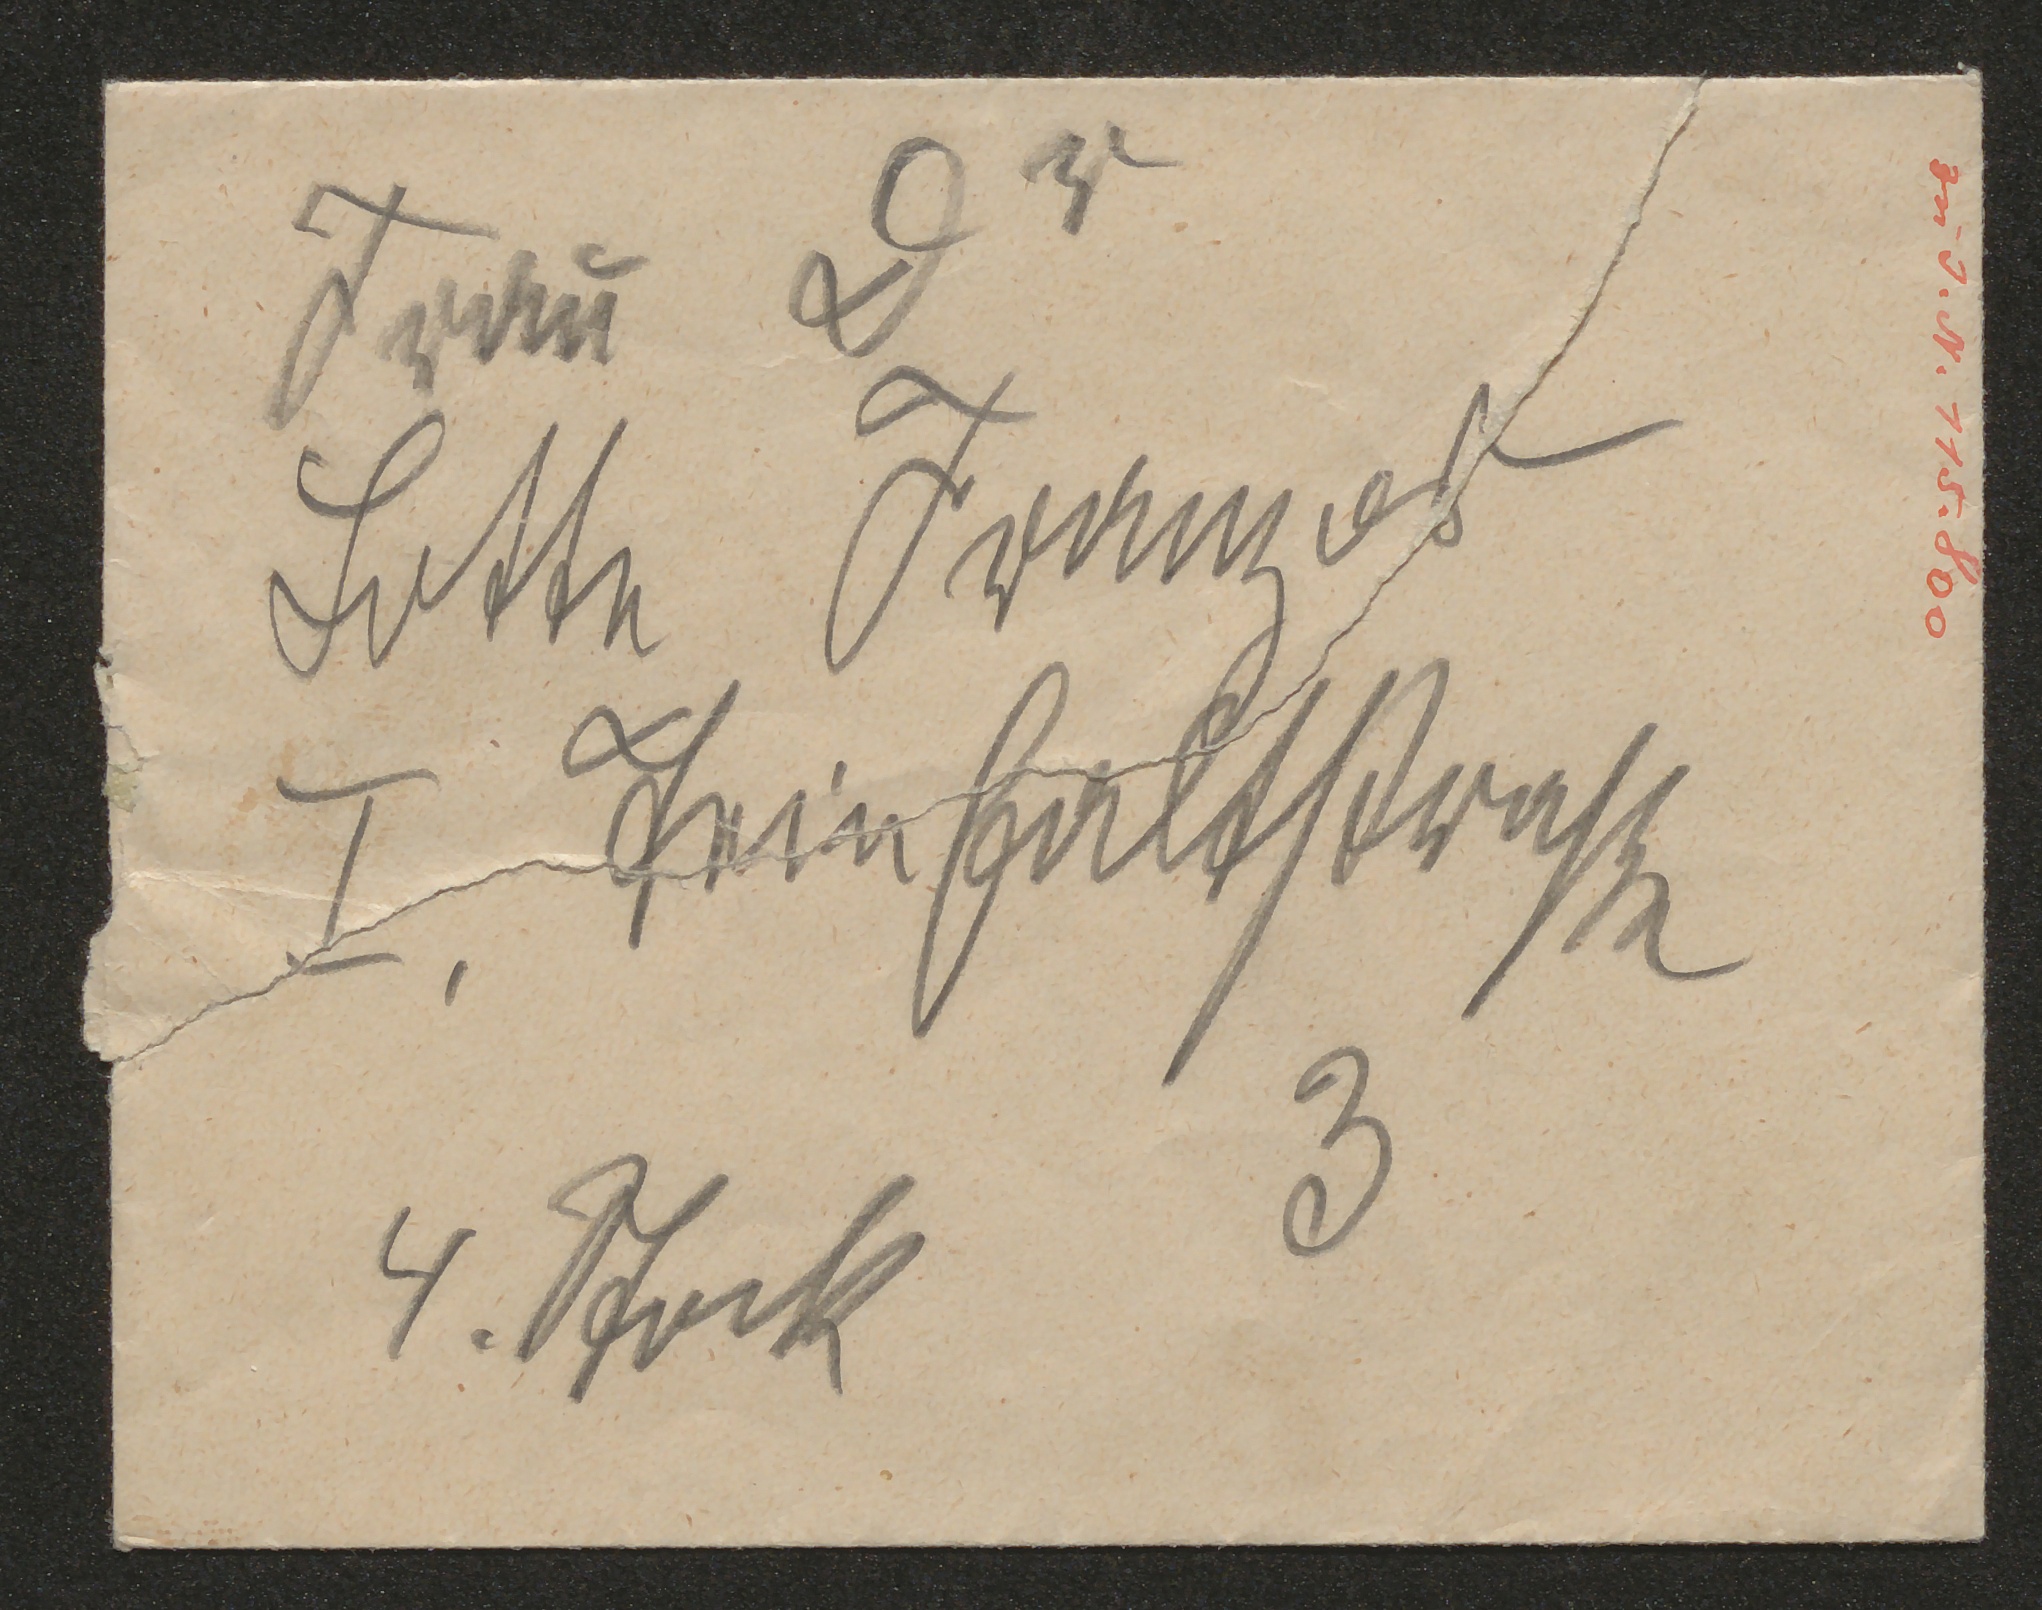 Frau Dr
Lotte Franzos
I, Teinfaltstrasse
3
4. Stock
zu J.N. 115.800